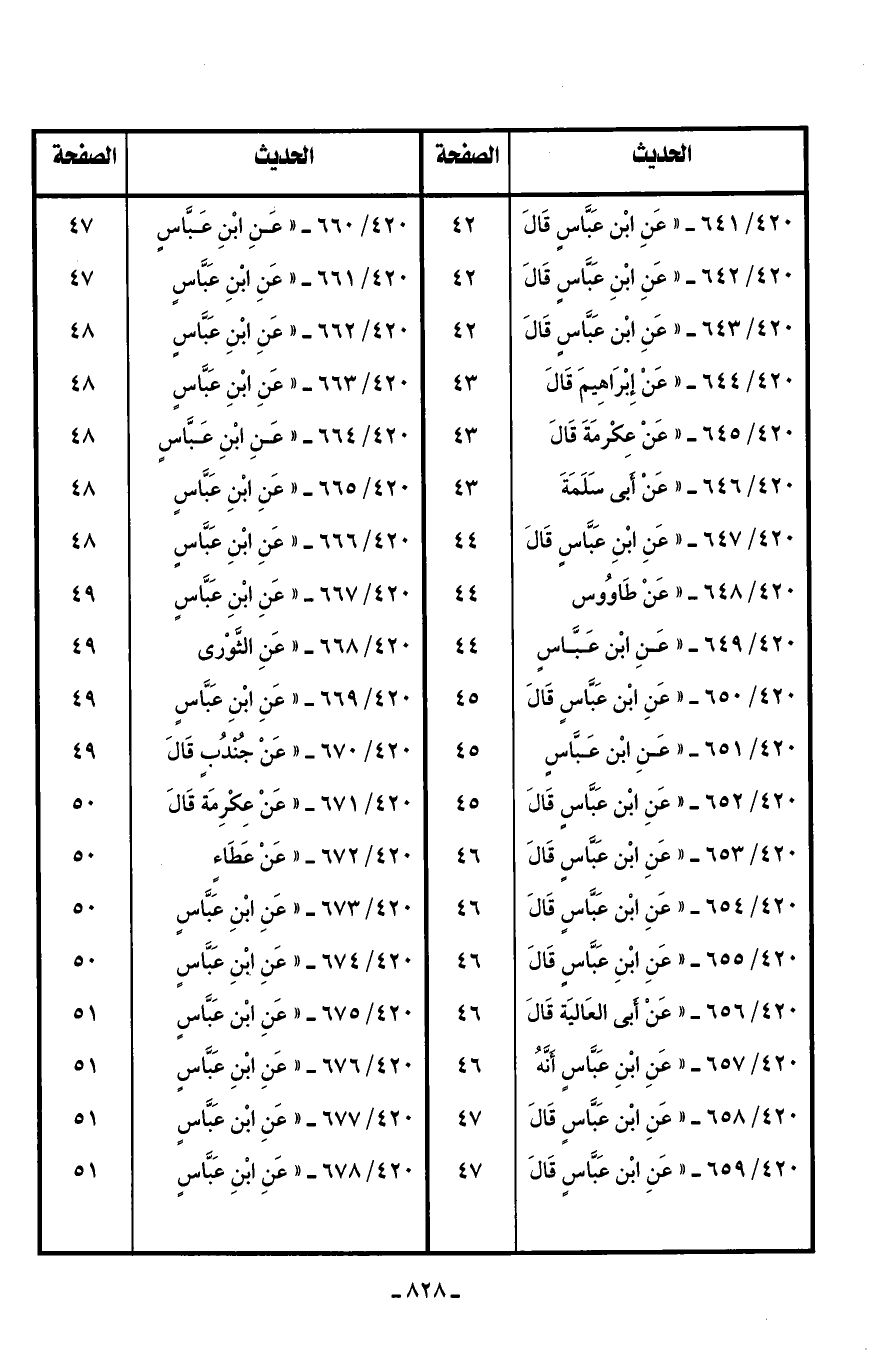 الحديث الصفحة الحديث الصفحة
٤٢٠/ ٦٤١ ـ « عَنِ ابْنِ عَبَّاسٍ قَالَ ٤٢ ٤٢٠/ ٦٦٠ ـ « عَـنِ ابْنِ عَـبَّاسٍ ٤٧
٤٢٠/ ٦٤٢ ـ « عَنِ ابْنِ عَبَّاسٍ قَالَ ٤٢ ٤٢٠/ ٦٦١ ـ « عَنِ ابْنِ عَبَّاسٍ ٤٧
٤٢٠/ ٦٤٣ ـ « عَنِ ابْنِ عَبَّاسٍ قَالَ ٤٢ ٤٢٠/ ٦٦٢ ـ « عَنِ ابْنِ عَبَّاسٍ ٤٨
٤٢٠/ ٦٤٤ ـ « عَنْ إِبْرَاهِيمَ قَالَ ٤٣ ٤٢٠/ ٦٦٣ ـ « عَنِ ابْنِ عَبَّاسٍ ٤٨
٤٢٠/ ٦٤٥ ـ « عَنْ عِكْرِمَةَ قَالَ ٤٣ ٤٢٠/ ٦٦٤ ـ « عَـنِ ابْنِ عَـبَّاسٍ ٤٨
٤٢٠/ ٦٤٦ ـ « عَنْ أَبى سَلَمَةَ ٤٣ ٤٢٠/ ٦٦٥ ـ « عَنِ ابْنِ عَبَّاسٍ ٤٨
٤٢٠/ ٦٤٧ ـ « عَنِ ابْنِ عَبَّاسٍ قَالَ ٤٤ ٤٢٠/ ٦٦٦ ـ « عَنِ ابْنِ عَبَّاسٍ ٤٨
٤٢٠/ ٦٤٨ ـ « عَنْ طَاوُوس ٤٤ ٤٢٠/ ٦٦٧ ـ « عَنِ ابْنِ عَبَّاسٍ ٤٩
٤٢٠/ ٦٤٩ ـ « عَـنِ ابْنِ عَـبَّـاسٍ ٤٤ ٤٢٠/ ٦٦٨ ـ « عَنِ الثَّوْرى ٤٩
٤٢٠/ ٦٥٠ ـ « عَنِ ابْنِ عَبَّاسٍ قَالَ ٤٥ ٤٢٠/ ٦٦٩ ـ « عَنِ ابْنِ عَبَّاسٍ ٤٩
٤٢٠/ ٦٥١ ـ « عَـنِ ابْنِ عَـبَّاسٍ ٤٥ ٤٢٠/ ٦٧٠ ـ « عَنْ جُنْدُبٍ قَالَ ٤٩
٤٢٠/ ٦٥٢ ـ « عَنِ ابْنِ عَبَّاسٍ قَالَ ٤٥ ٤٢٠/ ٦٧١ ـ « عَنْ عِكْرِمَة قَالَ ٥٠
٤٢٠/ ٦٥٣ ـ « عَنِ ابْنِ عَبَّاسٍ قَالَ ٤٦ ٤٢٠/ ٦٧٢ ـ « عَنْ عَطَاءٍ ٥٠
٤٢٠/ ٦٥٤ ـ « عَنِ ابْنِ عَبَّاسٍ قَالَ ٤٦ ٤٢٠/ ٦٧٣ ـ « عَنِ ابْنِ عَبَّاسٍ ٥٠
٤٢٠/ ٦٥٥ ـ « عَنِ ابْنِ عَبَّاسٍ قَالَ ٤٦ ٤٢٠/ ٦٧٤ ـ « عَنِ ابْنِ عَبَّاسٍ ٥٠
٤٢٠/ ٦٥٦ ـ « عَنْ أَبى العَاليَة قَالَ ٤٦ ٤٢٠/ ٦٧٥ ـ « عَنِ ابْنِ عَبَّاسٍ ٥١
٤٢٠/ ٦٥٧ ـ « عَنِ ابْنِ عَبَّاسٍ أَنَّهُ ٤٦ ٤٢٠/ ٦٧٦ ـ « عَنِ ابْنِ عَبَّاسٍ ٥١
٤٢٠/ ٦٥٨ ـ « عَنِ ابْنِ عَبَّاسٍ قَالَ ٤٧ ٤٢٠/ ٦٧٧ ـ « عَنِ ابْنِ عَبَّاسٍ ٥١
٤٢٠/ ٦٥٩ ـ « عَنِ ابْنِ عَبَّاسٍ قَالَ ٤٧ ٤٢٠/ ٦٧٨ ـ « عَنِ ابْنِ عَبَّاسٍ ٥١
ـ ٨٢٨ ـ